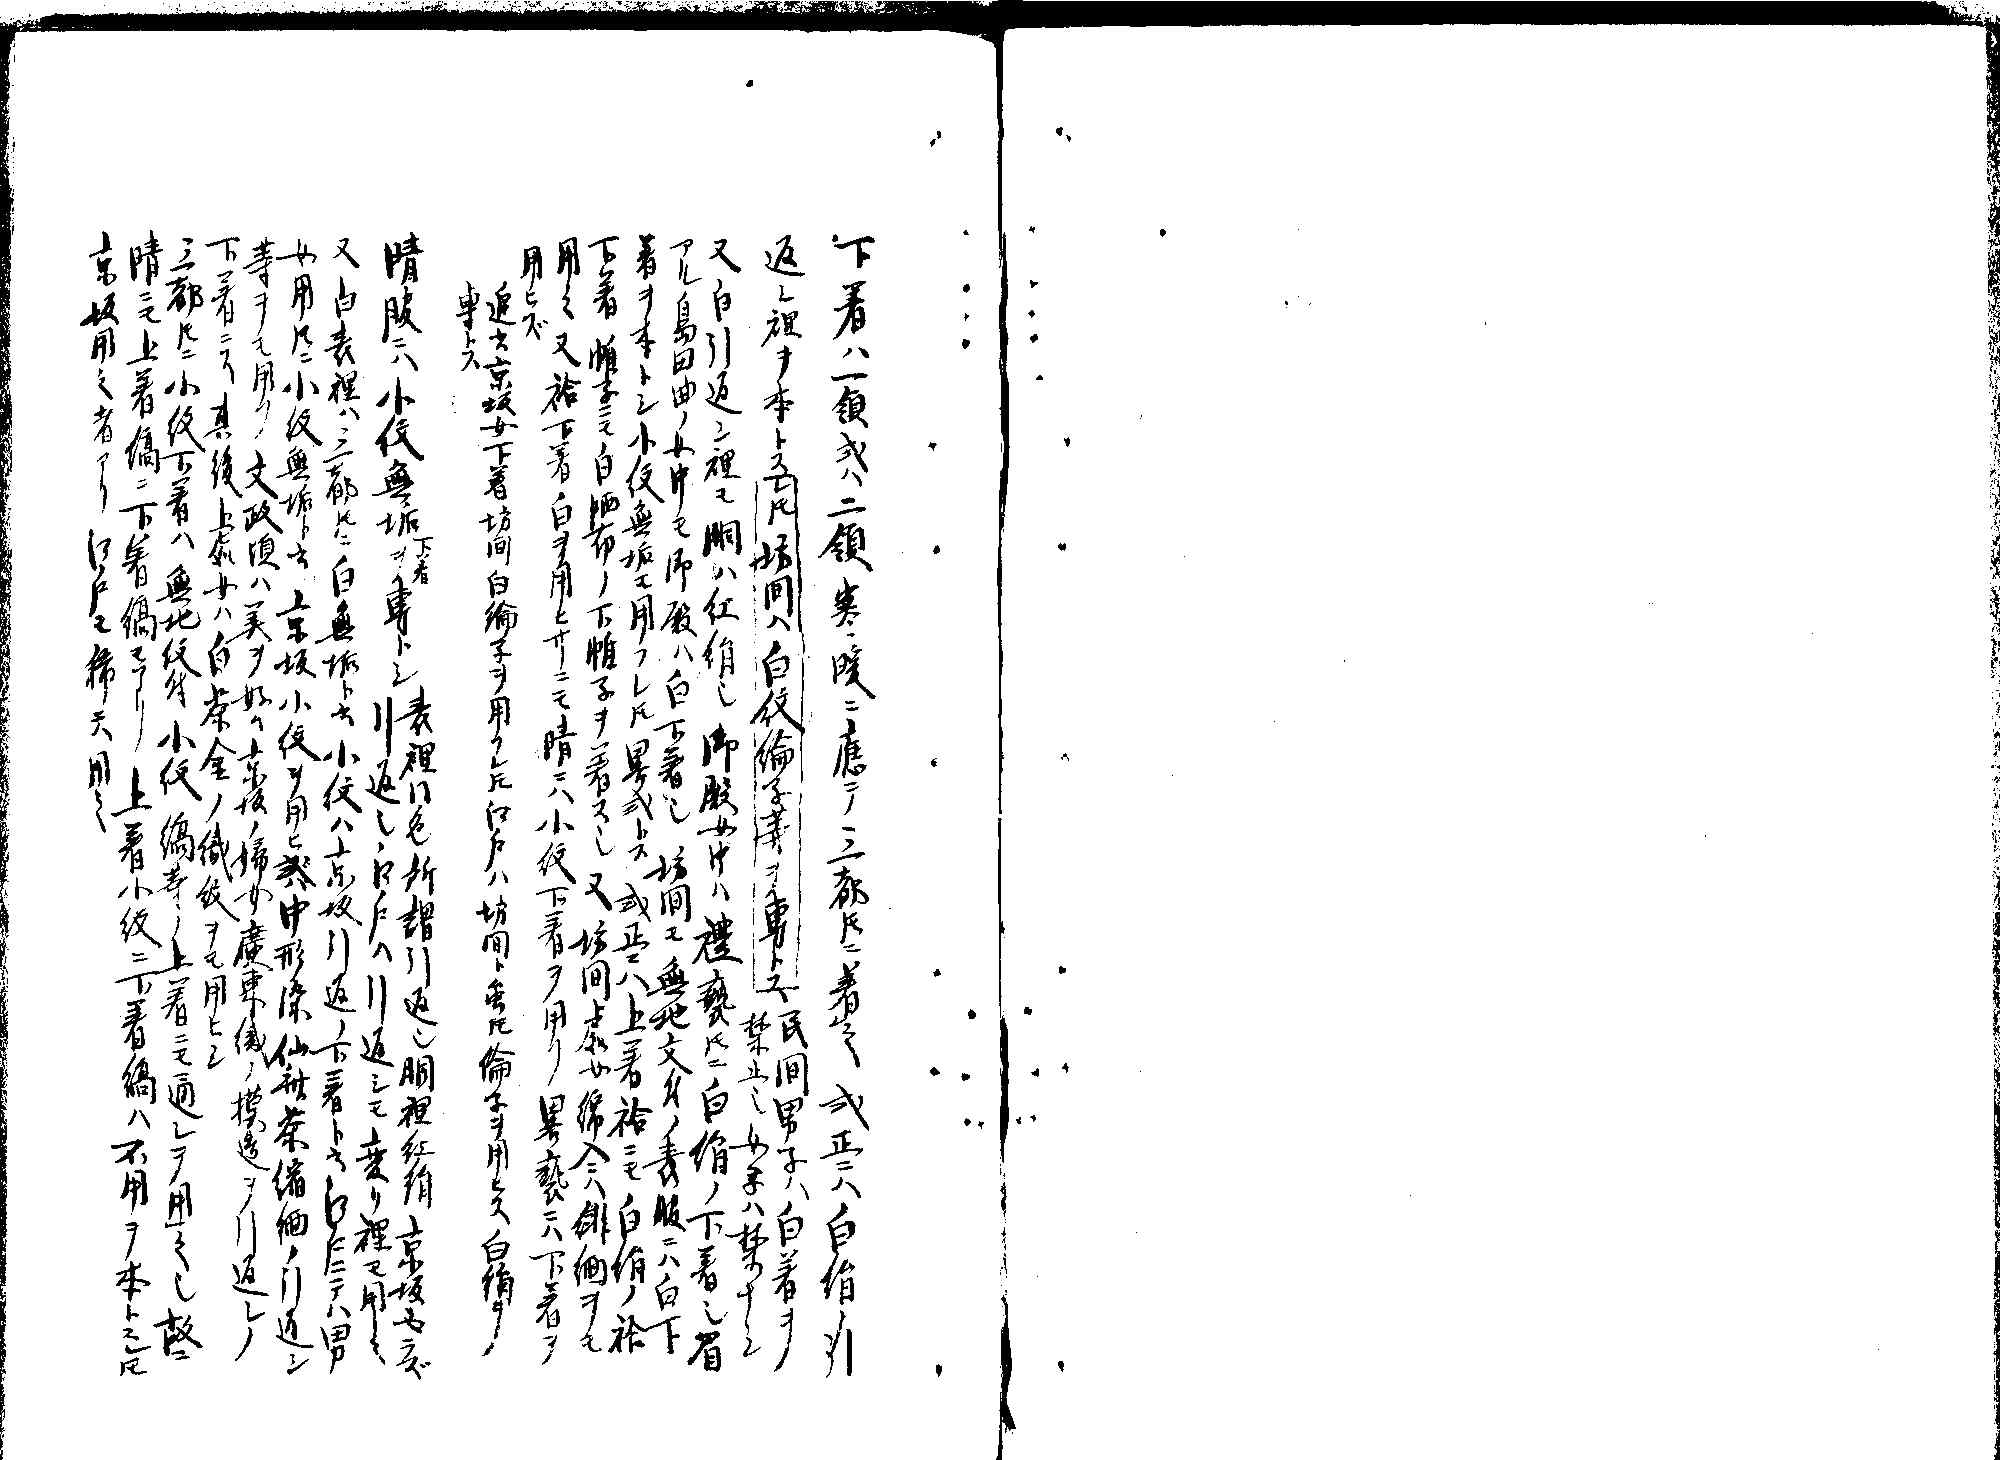 下着ハ一領或ハ二領寒暖ニ應テ三都トモニ着之 或正ニハ白絹ノ引
返シ裡ヲ本トス𪜈坊間ハ白紋綸子等ヲ専トス
民間男子ハ白着ヲ
禁止シ女子ハ禁ナシ
又白引返シ裡モ胴ハ紅絹也 御殿女中ハ禮褻𪜈ニ白絹ノ下着也 眉
アル島田曲ノ女中モ御殿ハ白下着也 坊間モ無地文付ノ表服ニハ白下
着ヲ本トシ小紋無垢モ用フレ𪜈畧式トス 或正ニハ上着袷ニモ白絹ノ袷
下着 帷子ニモ白晒布ノ下帷子ヲ着ス也 又坊間上輩女綿入ニハ緋縮緬ヲモ
用之 又袷下着白ヲ用ヒザルニモ晴ニハ小紋下着ヲ用フ 畧褻ニハ下着ヲ
用ヒズ
追書京坂女下着坊間白綸子ヲ用フレ𪜈江戸ハ坊間ト雖𪜈綸子ヲ用ヒズ 白絹ヲ
専トス
晴服ニハ小紋無垢下着ヲ専トシ 表裡同色所謂引返シ胴裡紅絹 京坂必ズ
引返シ 江戸ハ引返シモ変リ裡モ用之
又白表裡ハ三都𪜈ニ白無垢ト云 小紋ハ京坂引返ノ下着ト云 江戸ニテハ男
女用𪜈ニ小紋無垢ト云 京坂小紋ヲ用ヒ 或ハ中形染仙斎茶縮緬ノ引返シ
等ヲモ用フ 文政頃ハ美ヲ好ミ京坂ノ婦女廣東織ノ模造ヲ引返シノ
下着ニス 其後上輩女ハ白茶金ノ織紋ヲモ用ヒシ
三都𪜈ニ小紋下着ハ無地紋付小紋 縞等ノ上着ニモ通シテ用之也 故ニ
晴ニモ上着縞ニ下着縞モアリ 上着小紋ニ下着縞ハ不用ヲ本トスレ𪜈
京坂用之者アリ 江戸モ稀ニ用之